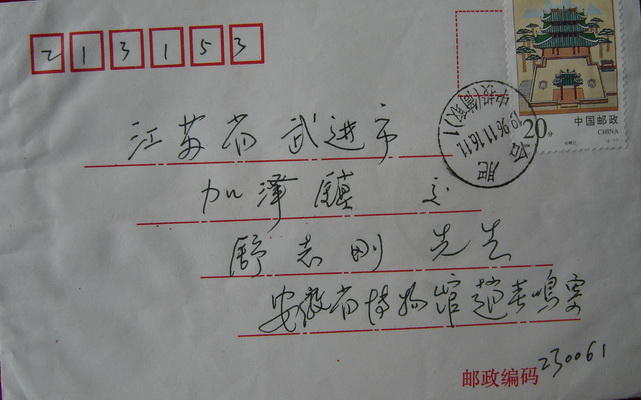 213153
中国邮政
CHINA
20分
合肥
江苏省 武进市
加泽镇 交
舒志刚 先生
安徽省博物馆 赵春鸣寄
邮政编码 230061